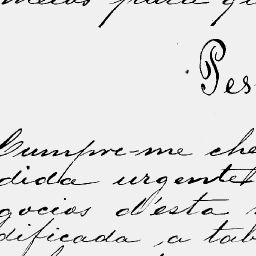 para
Pes
Cumpre-me che
dida urgente
gocios d'esta
dificada a tab